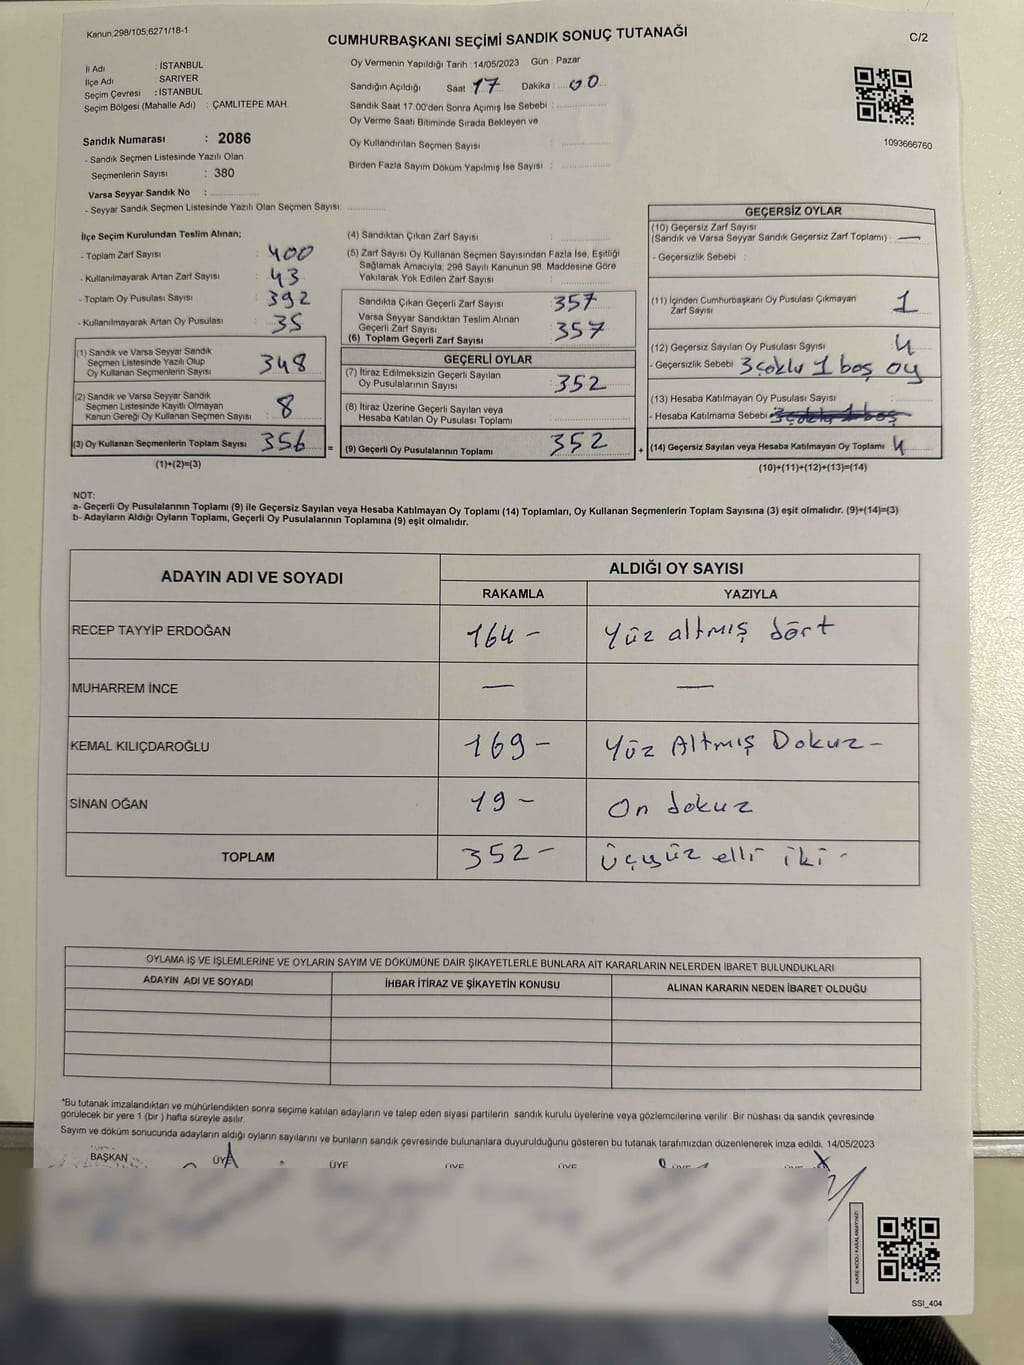 Kanun;298/105;6271/18-1
CUMHURBAŞKANI SEÇİMİ SANDIK SONUÇ TUTANAĞI
C/2
İl Adı : İSTANBUL
İlçe Adı SARIYER
Seçim Çevresi : İSTANBUL
Seçim Bölgesi (Mahalle Adı) : ÇAMLITEPE MAH.
Sandık Numarası : 2086
- Sandık Seçmen Listesinde Yazılı Olan
Seçmenlerin Sayısı : 380
Varsa Seyyar Sandık No :
- Seyyar Sandık Seçmen Listesinde Yazılı Olan Seçmen Sayısı:
Oy Vermenin Yapıldığı Tarih : 14/05/2023 Gün : Pazar
Sandığın Açıldığı Saat 17 Dakika : 00
Sandık Saat 17:00'den Sonra Açımış İse Sebebi :
Oy Verme Saati Bitiminde Sırada Bekleyen ve
Oy Kullandırılan Seçmen Sayısı :
Birden Fazla Sayım Döküm Yapılmış İse Sayısı :
1093666760
İlçe Seçim Kurulundan Teslim Alınan;
- Toplam Zarf Sayısı : 400
- Kullanılmayarak Artan Zarf Sayısı : 43
- Toplam Oy Pusulası Sayısı : 392
- Kullanılmayarak Artan Oy Pusulası : 35
(1) Sandık ve Varsa Seyyar Sandık
Seçmen Listesinde Yazılı Olup
Oy Kullanan Seçmenlerin Sayısı : 348
(2) Sandık ve Varsa Seyyar Sandık
Seçmen Listesinde Kayıtlı Olmayan
Kanun Gereği Oy Kullanan Seçmen Sayısı : 8
(3) Oy Kullanan Seçmenlerin Toplam Sayısı : 356 =
(1)+(2)=(3)
(4) Sandıktan Çıkan Zarf Sayısı :
(5) Zarf Sayısı Oy Kullanan Seçmen Sayısından Fazla İse, Eşitliği
Sağlamak Amacıyla; 298 Sayılı Kanunun 98. Maddesine Göre
Yakılarak Yok Edilen Zarf Sayısı :
Sandıkta Çıkan Geçerli Zarf Sayısı : 357
Varsa Seyyar Sandıktan Teslim Alınan
Geçerli Zarf Sayısı : 357
(6) Toplam Geçerli Zarf Sayısı :
GEÇERLİ OYLAR
(7) İtiraz Edilmeksizin Geçerli Sayılan
Oy Pusulalarının Sayısı : 352
(8) İtiraz Üzerine Geçerli Sayılan veya
Hesaba Katılan Oy Pusulası Toplamı :
(9) Geçerli Oy Pusulalarının Toplamı : 352 +
GEÇERSİZ OYLAR
(10) Geçersiz Zarf Sayısı
(Sandık ve Varsa Seyyar Sandık Geçersiz Zarf Toplamı) : —
- Geçersizlik Sebebi :
(11) İçinden Cumhurbaşkanı Oy Pusulası Çıkmayan
Zarf Sayısı : 1
(12) Geçersiz Sayılan Oy Pusulası Sayısı : 4
- Geçersizlik Sebebi : 3 çoklu 1 boş oy
(13) Hesaba Katılmayan Oy Pusulası Sayısı :
- Hesaba Katılmama Sebebi : 3 çoklu 1 boş
(14) Geçersiz Sayılan veya Hesaba Katılmayan Oy Toplamı : 4
(10)+(11)+(12)+(13)=(14)
NOT:
a- Geçerli Oy Pusulalarının Toplamı (9) ile Geçersiz Sayılan veya Hesaba Katılmayan Oy Toplamı (14) Toplamları, Oy Kullanan Seçmenlerin Toplam Sayısına (3) eşit olmalıdır. (9)+(14)=(3)
b- Adayların Aldığı Oyların Toplamı, Geçerli Oy Pusulalarının Toplamına (9) eşit olmalıdır.
ADAYIN ADI VE SOYADI
ALDIĞI OY SAYISI
RAKAMLA YAZIYLA
RECEP TAYYİP ERDOĞAN 164 - Yüz altmış dört
MUHARREM İNCE — —
KEMAL KILIÇDAROĞLU 169 - Yüz Altmış Dokuz -
SİNAN OĞAN 19 - On dokuz
TOPLAM 352 - üçyüz elli iki -
OYLAMA İŞ VE İŞLEMLERİNE VE OYLARIN SAYIM VE DÖKÜMÜNE DAİR ŞİKAYETLERLE BUNLARA AİT KARARLARIN NELERDEN İBARET BULUNDUKLARI
ADAYIN ADI VE SOYADI İHBAR İTİRAZ VE ŞİKAYETİN KONUSU ALINAN KARARIN NEDEN İBARET OLDUĞU
*Bu tutanak imzalandıktan ve mühürlendikten sonra seçime katılan adayların ve talep eden siyasi partilerin sandık kurulu üyelerine veya gözlemcilerine verilir. Bir nüshası da sandık çevresinde
görülecek bir yere 1 (bir ) hafta süreyle asılır.
Sayım ve döküm sonucunda adayların aldığı oyların sayılarını ve bunların sandık çevresinde bulunanlara duyurulduğunu gösteren bu tutanak tarafımızdan düzenlenerek imza edildi. 14/05/2023
BAŞKAN ÜYE ÜYE ÜYE ÜYE ÜYE
KARE KODU KARALAMAYINIZ!
SSI_404